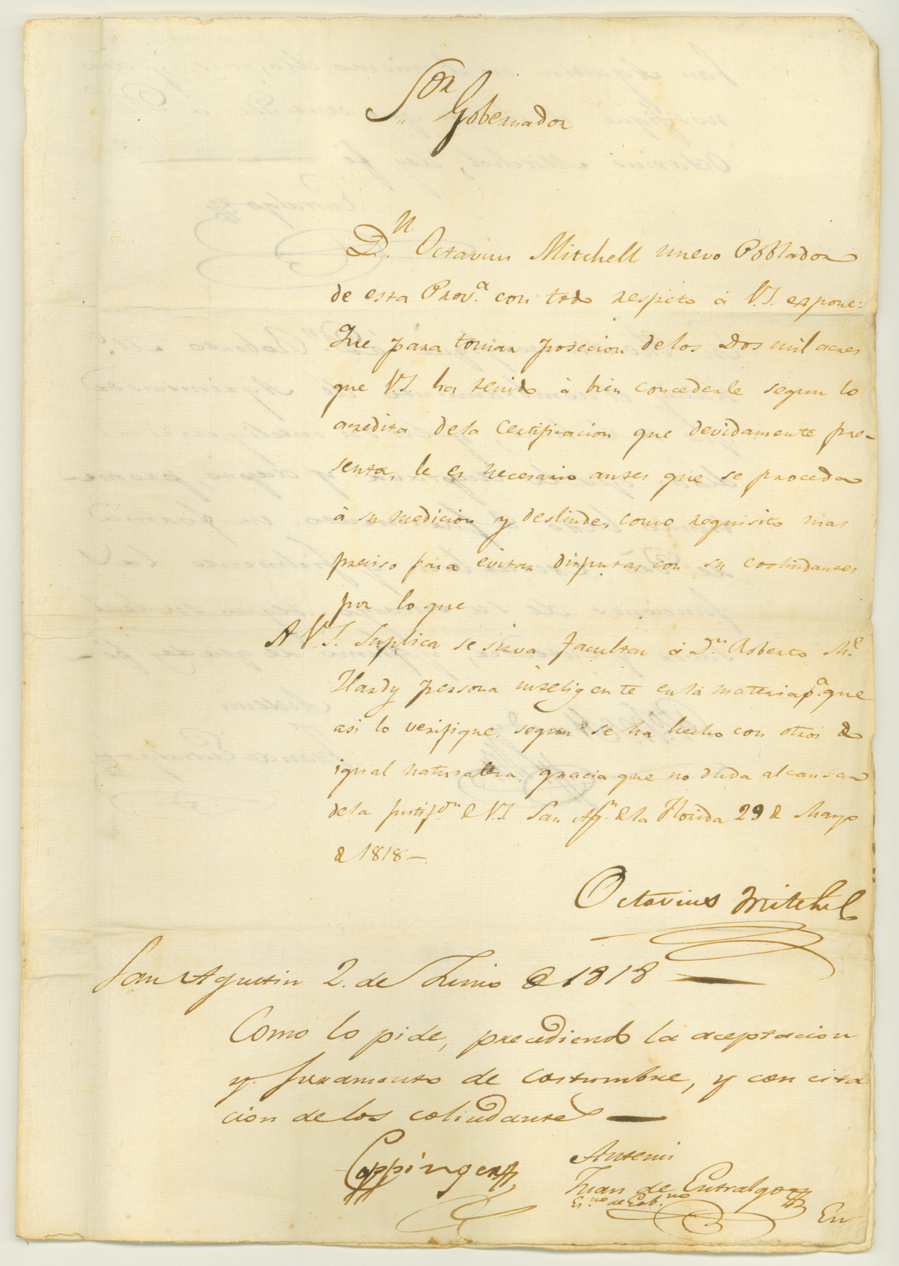 Sor Gobernador
Dn. Octavius Mitchell nuevo Poblador
de esta Prova. con todo respeto á V.S. expone:
Que para tomar posecion de los Dos mil acres
que V.S. ha tenido á bien concederle segun lo
acredita dela Certificacion que devidamente pre-
senta, le es necesario antes que se proceda
á su medicion y deslinde, como requisito mas
preciso para evitar disputas con su colindantes
por lo que
A V.S. Suplica se sirva facultar á Dn. Roberto Mc.
Hardy persona inteligente en la materia pa. que
asi lo verifique, segun se ha hecho con otros de
igual naturalesa, gracia que no duda alcansar
dela justifon. de V.S. San Agn. de la Florida 29 de Mayo
de 1818—
Octavius Mitchel
San Agustin 2. de Junio de 1818—
Como lo pide, precediendo la aceptacion
y juramento de costumbre, y con cita
cion de los colindantes—
Coppinger
Antemi
Juan de Entralgo
Esno. de Gobno.
En